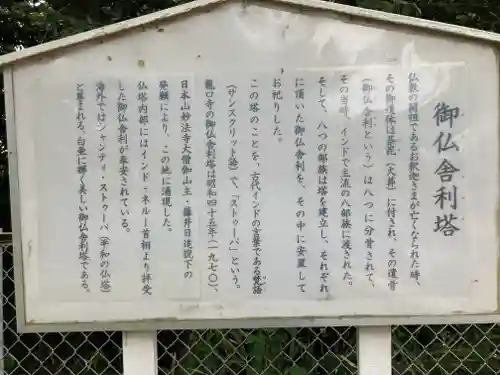 御仏舎利塔
仏教の開祖であるお釈迦さまが亡くなられた時、
その御遺体は荼毘(火葬)に付され、その遺骨
(御仏舎利という)は八つに分骨されて、
その当時、インドで主流の八部族に渡された。
そして、八つの部族は塔を建立し、それぞれ
に頂いた御仏舎利を、その中に安置して
お祀りした。
この塔のことを、古代インドの言葉である梵語
(サンスクリット語)で、「ストゥーパ」という。
龍口寺の御仏舎利塔は昭和四十五年(一九七〇)、
日本山妙法寺大僧伽山主・藤井日達猊下の
発願により、この地に涌現した。
仏塔内部にはインド・ネルー首相より拝受
した御仏舎利が奉安されている。
海外ではシャンティ・ストゥーパ(平和の仏塔)
と尊まれる。白亜に輝く美しい御仏舎利塔である。